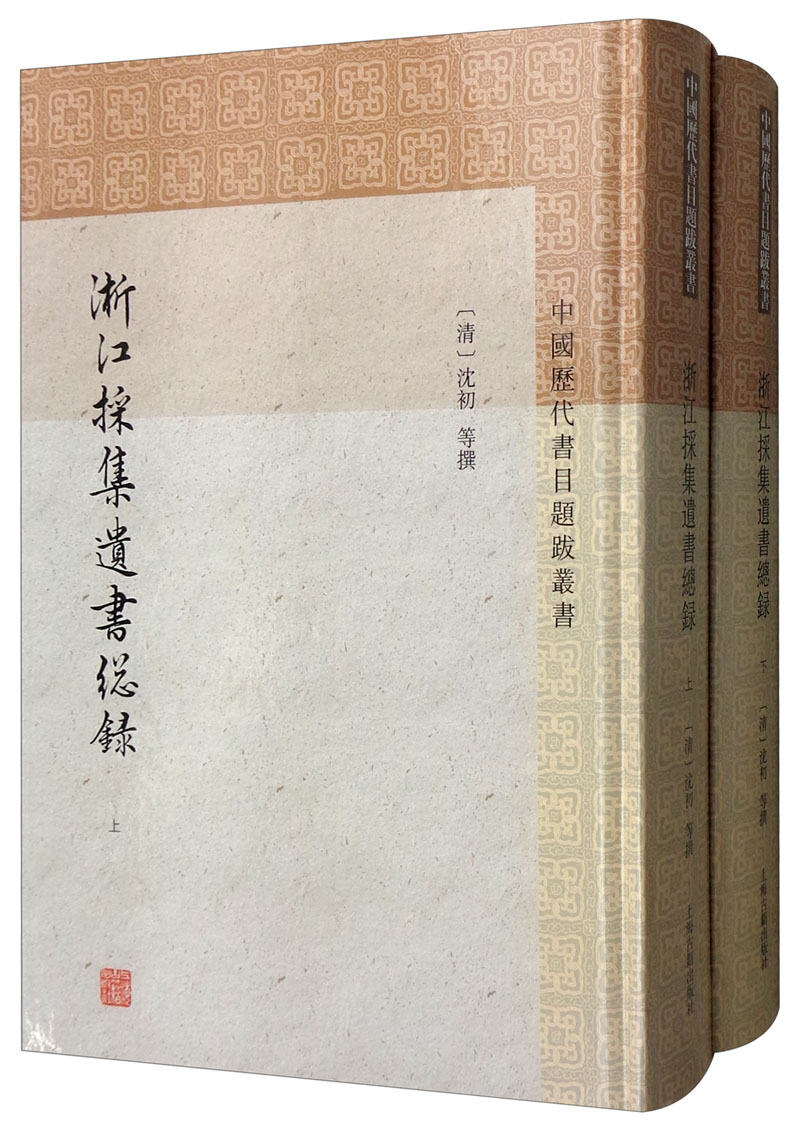 中國歷代書目題跋叢書
〔清〕沈初 等撰
浙江採集遺書総録
上
中國歷代書目題跋叢書
浙江採集遺書總録
上
〔清〕沈初 等撰
上海古籍出版社
中國歷代書目題跋叢書
浙江採集遺書總録
下
〔清〕沈初 等撰
上海古籍出版社